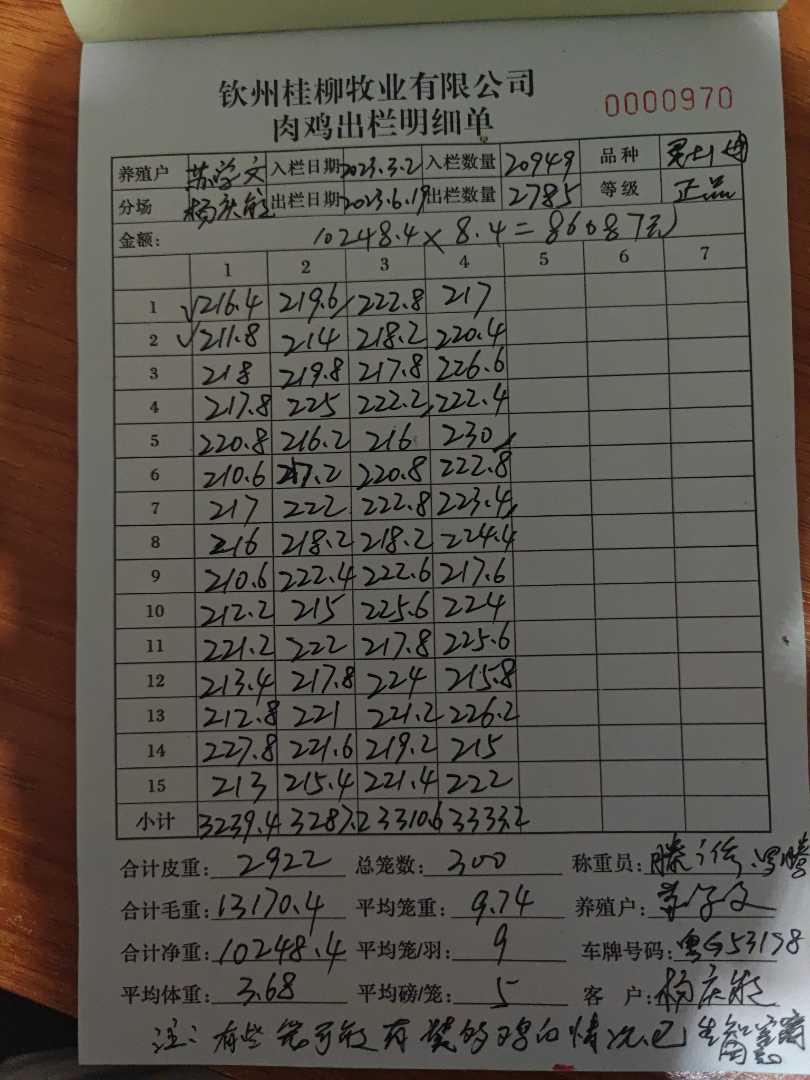 钦州桂柳牧业有限公司
0000970
肉鸡出栏明细单
养殖户 苏学文 入栏日期 2023.3.2 入栏数量 20949 品种
分场 杨庆 出栏日期 2023.6.19 出栏数量 2785 等级 正品
金额: 10248.4×8.4=86087元
1 2 3 4 5 6 7
1 √216.4 219.6 222.8 217
2 √211.8 214 218.2 220.4
3 218 219.8 217.8 226.6
4 217.8 225 222.2 222.4
5 220.8 216.2 216 230
6 210.6 217.2 220.8 222.8
7 217 222 222.8 223.4
8 216 218.2 218.2 224.4
9 210.6 222.4 222.6 217.6
10 212.2 215 225.6 224
11 221.2 222 217.8 225.6
12 213.4 217.8 224 215.8
13 212.8 221 221.2 226.2
14 227.8 221.6 219.2 215
15 213 215.4 221.4 222
小计 3239.4 3287.2 3310.6 3333.2
合计皮重: 2922 总笼数: 300 称重员:
合计毛重: 13170.4 平均笼重: 9.74 养殖户: 苏学文
合计净重: 10248.4 平均笼/羽: 9 车牌号码: 粤G53198
平均体重: 3.68 平均磅/笼: 5 客户: 杨庆
注: 有些 有 的 的情况已